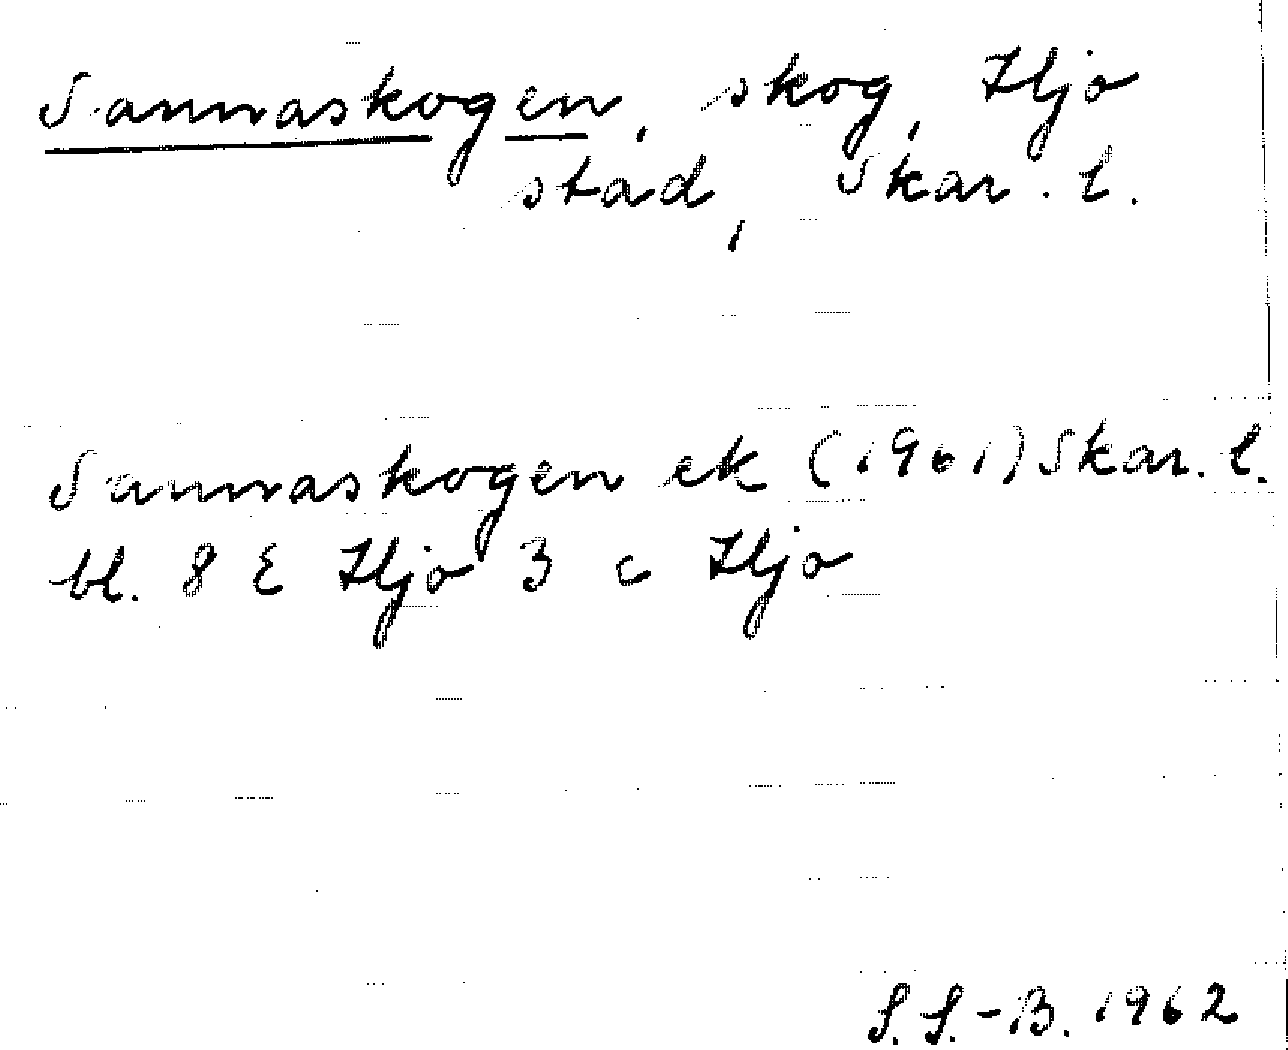 Sannaskogen, skog, Hjo
stad, Skar. l.
Sannaskogen ek (1961) Skar. l.
bl. 8 E Hjo 3 c Hjo
S.S.-B. 1962